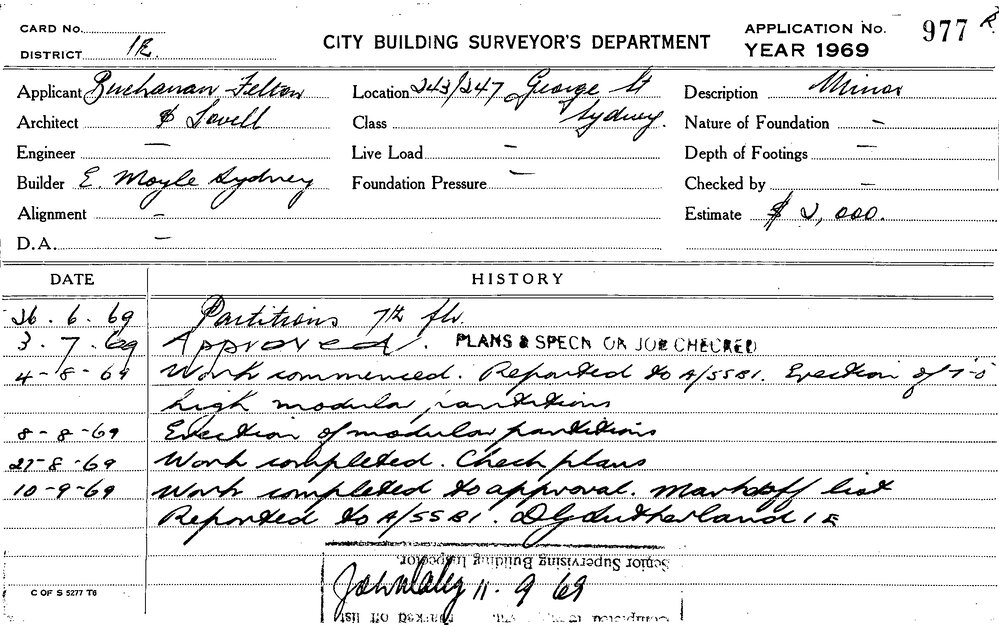 CARD No.
DISTRICT 1E.
CITY BUILDING SURVEYOR'S DEPARTMENT
APPLICATION No. 977 R.
YEAR 1969
Applicant Buchanan Felton Location 243/247 George St Description Minor
Architect & Lovell Class Sydney. Nature of Foundation –
Engineer – Live Load – Depth of Footings –
Builder E. Moyle Sydney Foundation Pressure – Checked by –
Alignment – Estimate $ 2,000.
D.A. –
DATE HISTORY
26.6.69 Partitions 7th flr.
3.7.69 Approved. PLANS & SPECN OR JOB CHECKED
4-8-69 Work commenced. Reported to A/SSBI. Erection of 7-0
high modular partitions
8-8-69 Erection of modular partitions
27-8-69 Work completed. Check plans
10-9-69 Work completed to approval. Markdoff list
Reported to A/SSBI. DGSutherland 1E
Senior Supervising Building Inspector
John Daley 11.9.69
Completed to
marked off list
C OF S 5277 T6